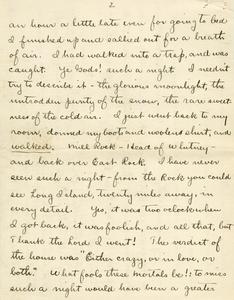 2
an hour a little late even for going to bed
I finished up and sallied out for a breath
of air. I had walked into a trap, and was
caught. Ye Gods! such a night I needn't
try to describe it - the glorious moonlight, the
untrodden purity of the snow, the rare sweet-
ness of the cold air. I just went back to my
room, donned my boots and woolend shirt, and
walked. Mill Rock - Head of Whitney -
and back over East Rock. I have never
seen such a night - from the Rock you could
see Long Island, twenty miles away, in
every detail. Yes, it was two o'clock when
I got back, it was foolish, and all that, but
Thank the Lord I went! The verdict of
the house was "Either crazy, or in love, or
both." What fools these mortals be!: to miss
such a night would have been a greater